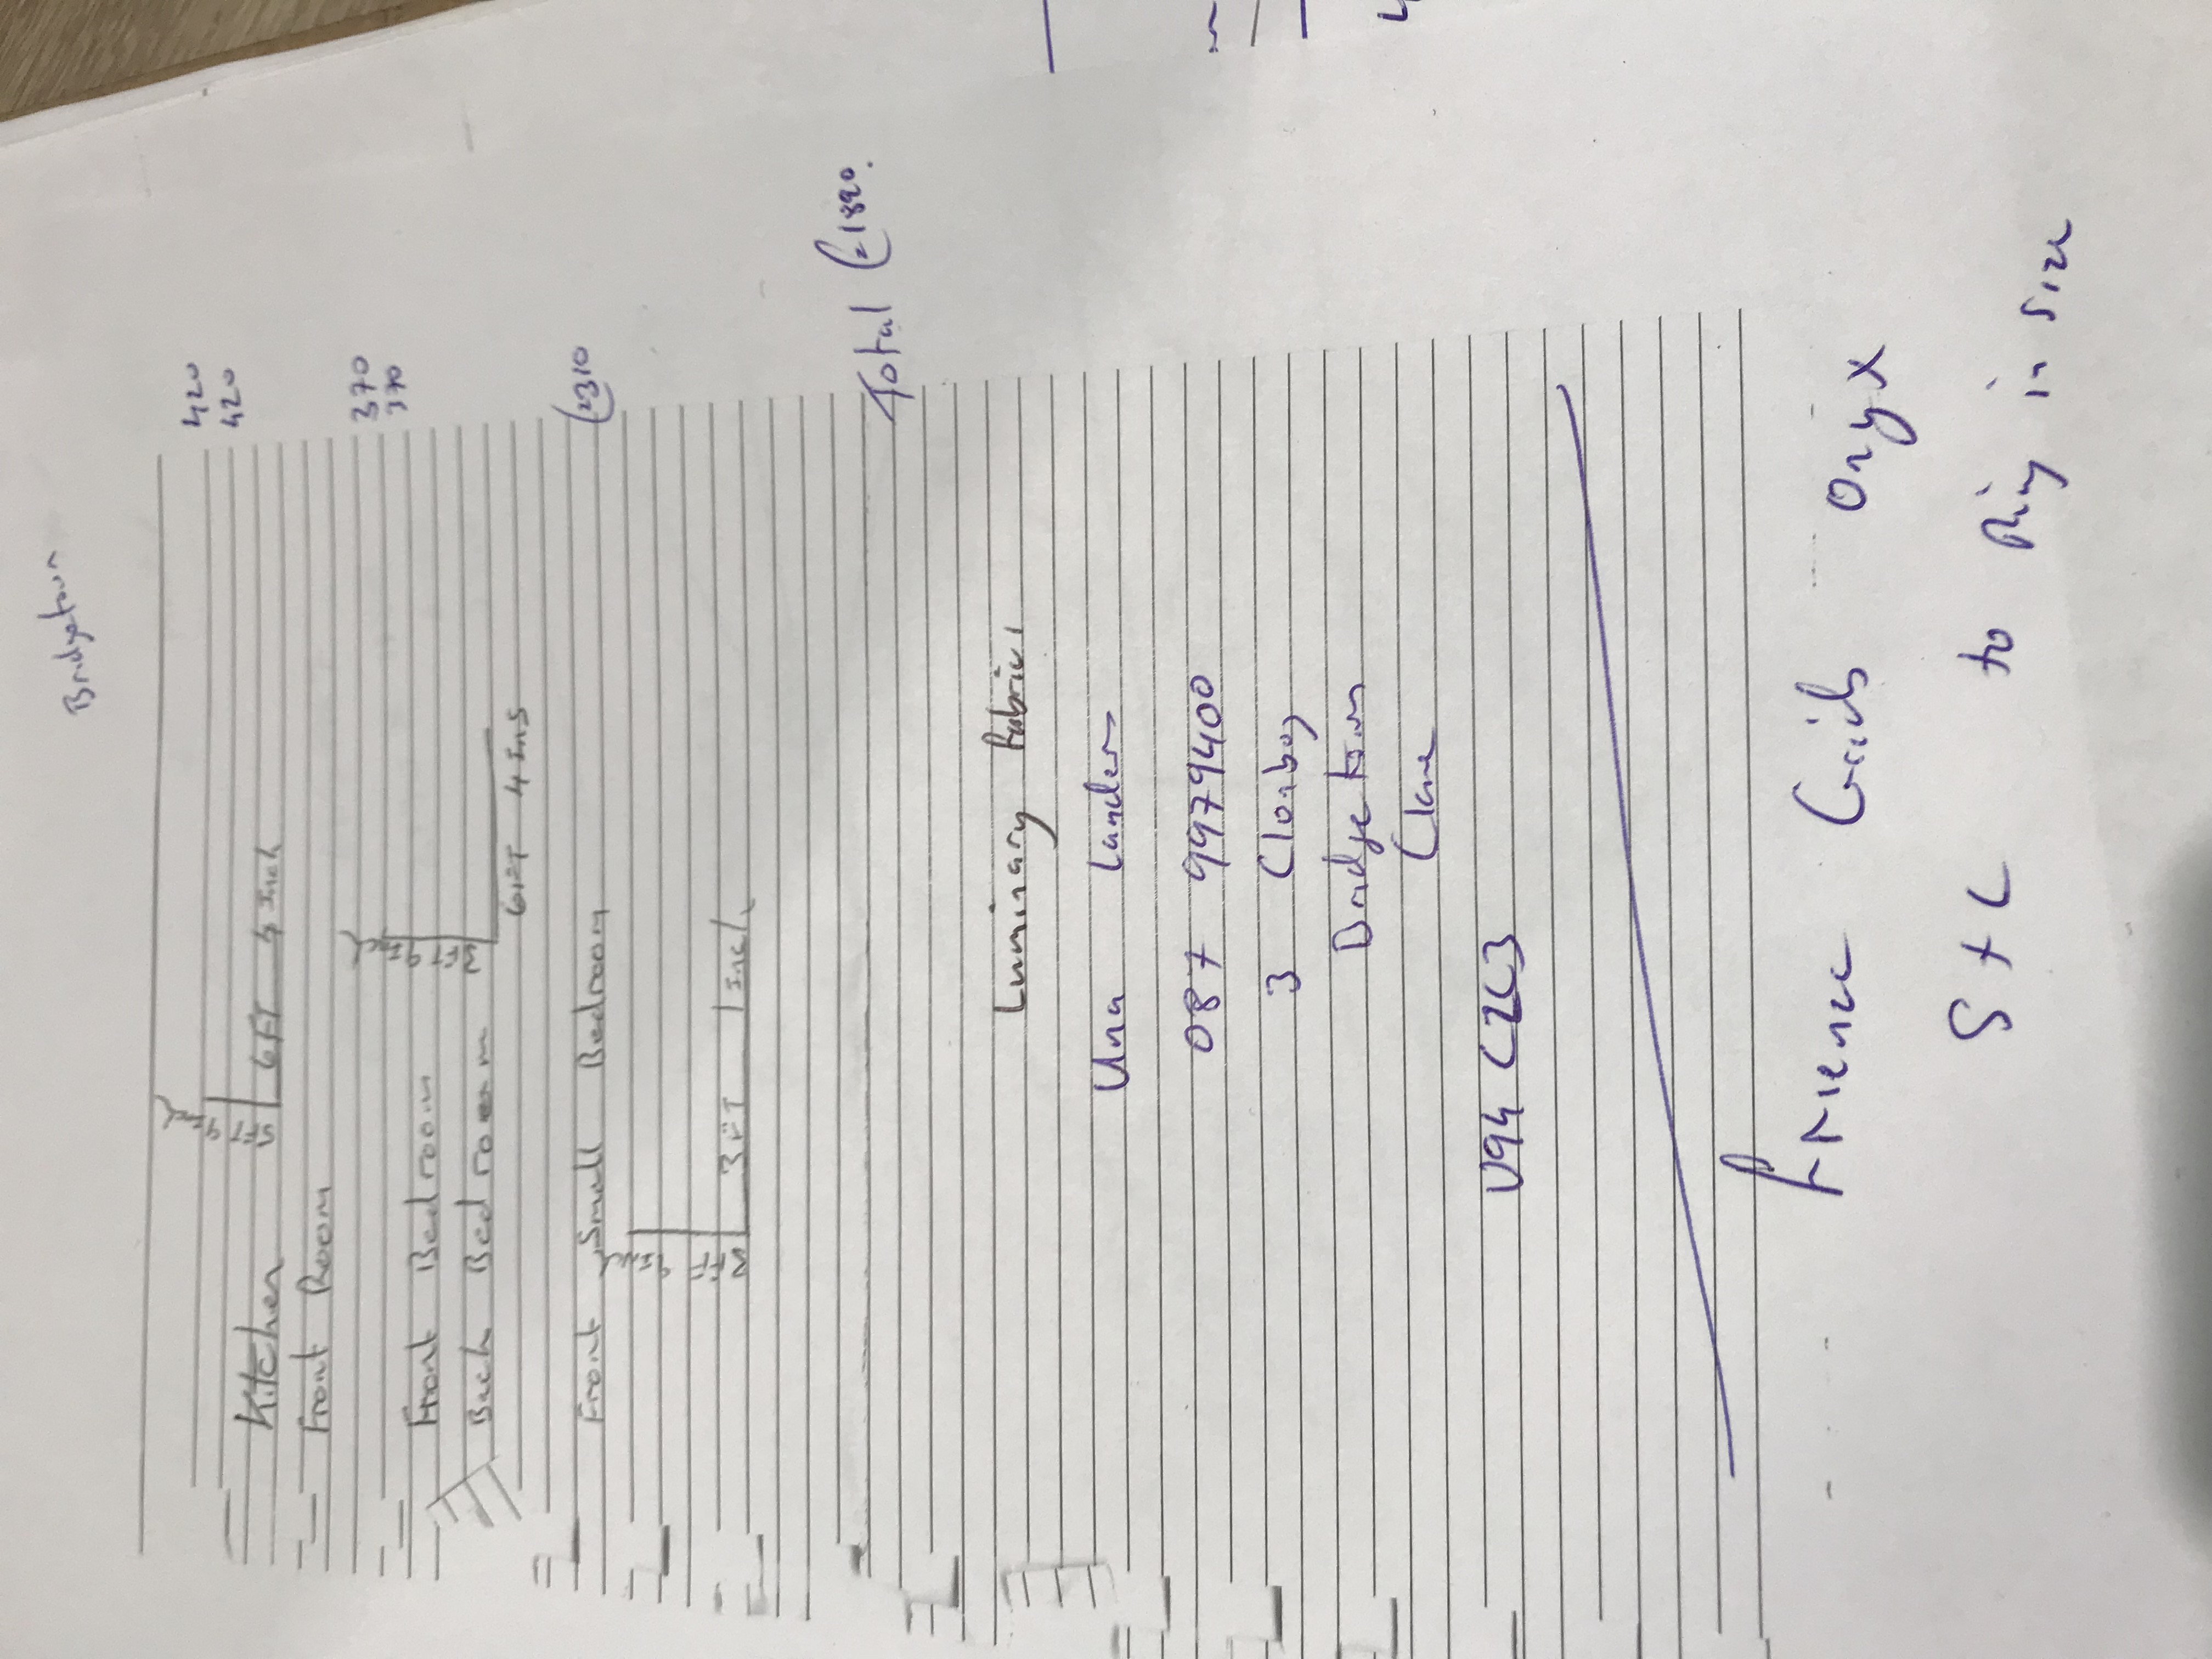 Bridgetown
420
420
Kitchen
6FT 4 Inch
Front Room
370
370
Front Bedroom
Back Bedroom
6FT 4 Ins
310
Front Small Bedroom
3FT 1 Inch
Total 1890.
Luminary Fabric 1
Una Lander
087 9979400
3 Clonboy
Bridgetown
Clare
V94 C2C3
Onyx
S + C to Ring in size